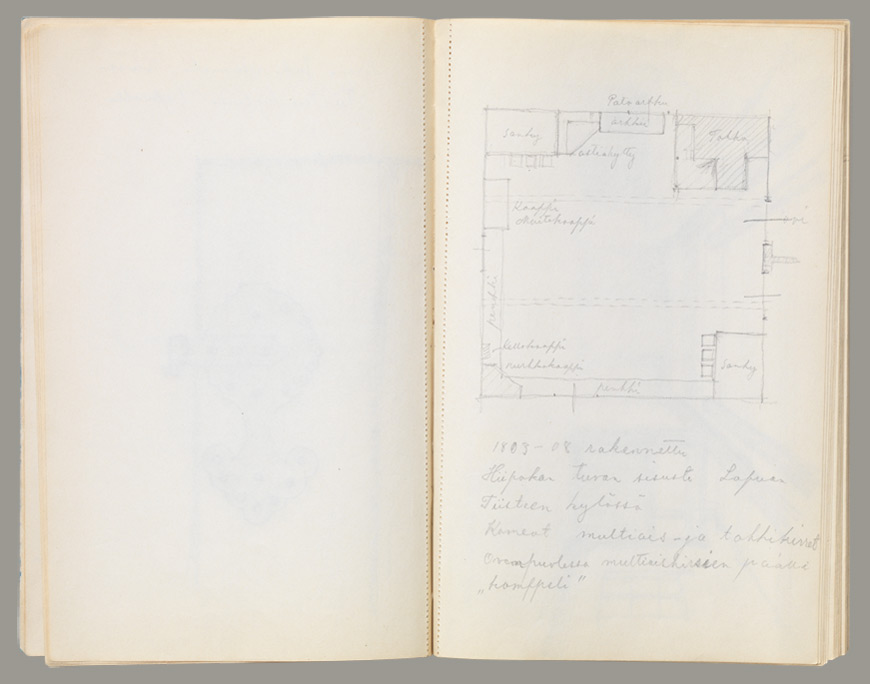 Pata arkku
arkku
sänky
Takka
astiahylly
Kaappi
Maitokaappi
ovi
penkki
Kellokaappi
nurkkakaappi
sänky
penkki
1803-08 rakennettu
Hiipakan tuvan sisuste Lapuan
Tiistien kylässä
Komeat multiais-ja tahkihirret
Ovenpuolessa multiaishirsien päällä
„komppeli"